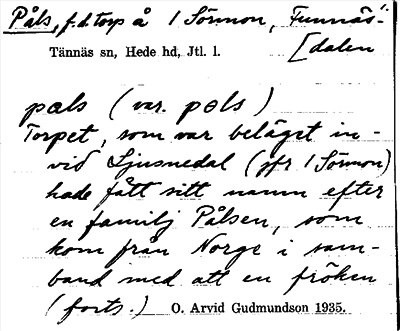 Påls, f.d. torp å 1 Sörmon, Funnäs-
[dalen
Tännäs sn, Hede hd, Jtl. l.
pɑls (var. pɵls)
Torpet, som var beläget in-
vid Ljusnedal (jfr 1 Sörmon)
hade fått sitt namn efter
en familj Pålsen, som
kom från Norge i sam-
band med att en fröken
(forts.) O. Arvid Gudmundson 1935.